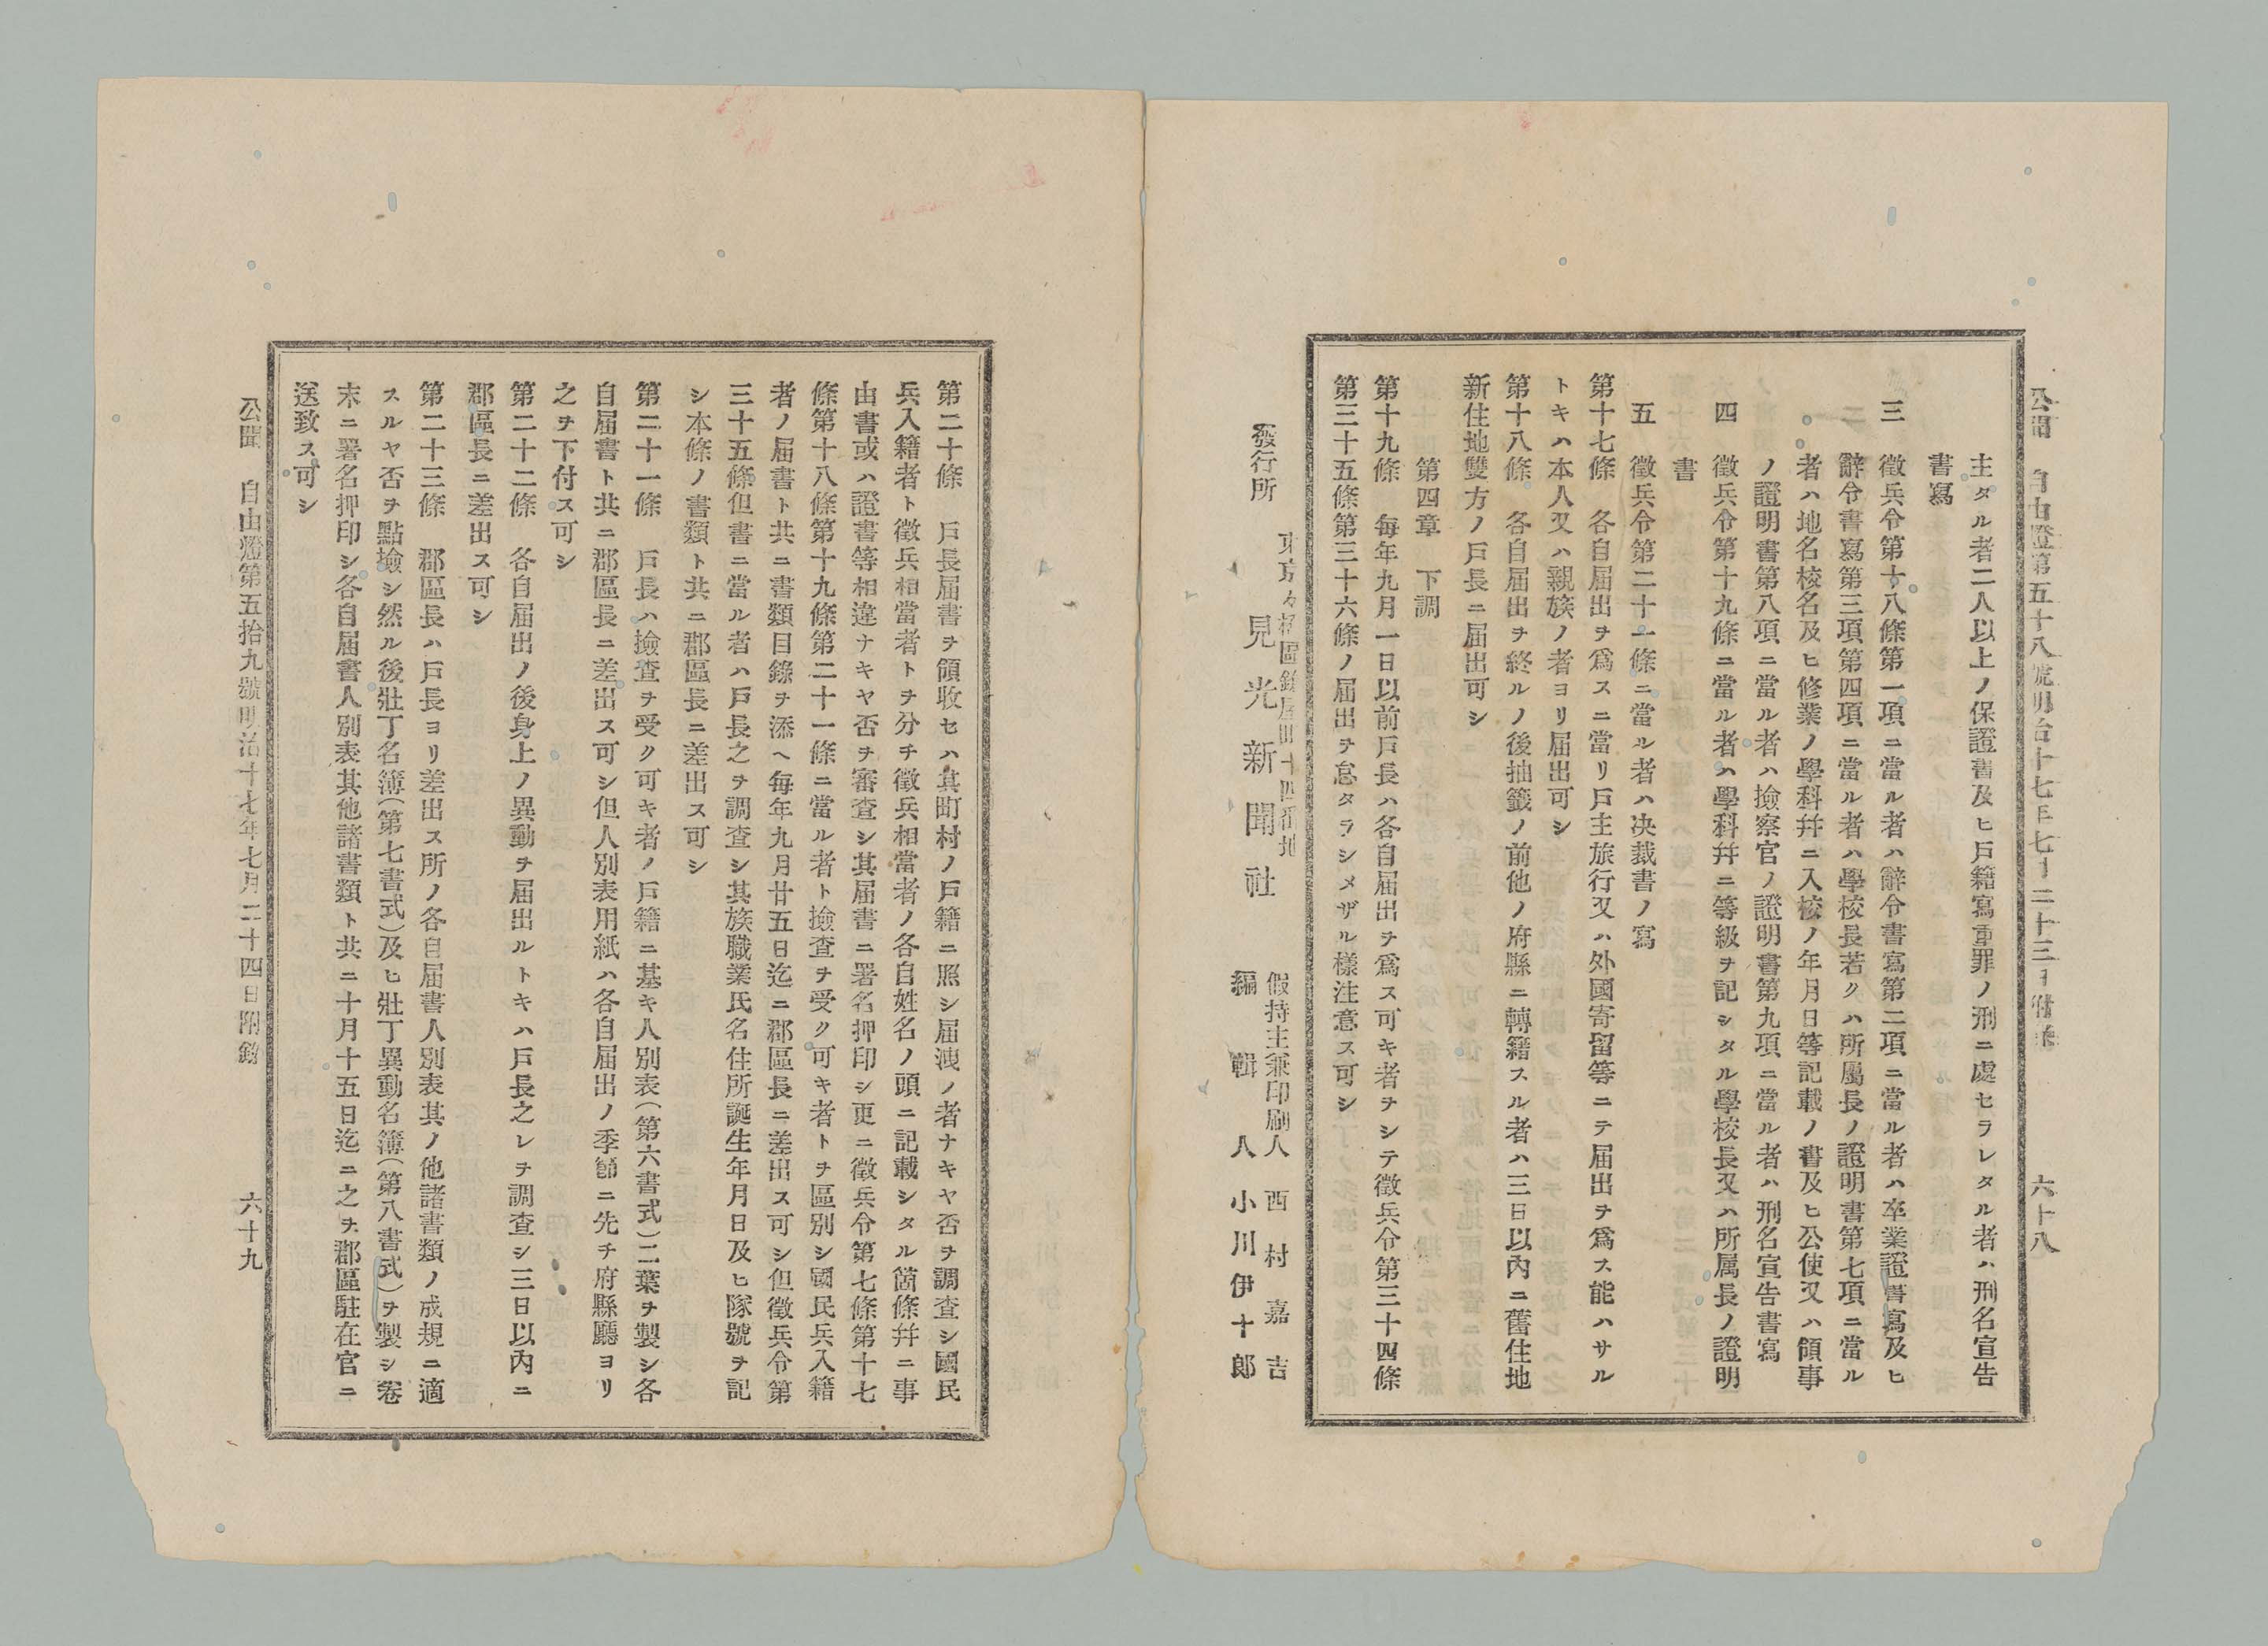 公聞 自由燈第五十八號明治十七年七月二十三日附錄 六十八
主タル者二人以上ノ保證書及ヒ戸籍寫重罪ノ刑ニ處セラレタル者ハ刑名宣告
書寫
三 徵兵令第十八條第一項ニ當ル者ハ辭令書寫第二項ニ當ル者ハ卒業證書寫及ヒ
辭令書寫第三項第四項ニ當ル者ハ學校長若クハ所屬長ノ證明書第七項ニ當ル
者ハ地名校名及ヒ修業ノ學科幷ニ入校ノ年月日等記載ノ書及ヒ公使又ハ領事
ノ證明書第八項ニ當ル者ハ撿察官ノ證明書第九項ニ當ル者ハ刑名宣告書寫
四 徵兵令第十九條ニ當ル者ハ學科幷ニ等級ヲ記シタル學校長又ハ所属長ノ證明
書
五 徵兵令第二十一條ニ當ル者ハ决裁書ノ寫
第十七條 各自届出ヲ爲スニ當リ戸主旅行又ハ外國寄留等ニテ届出ヲ爲ス能ハサル
トキハ本人又ハ親族ノ者ヨリ届出可シ
第十八條 各自届出ヲ終ルノ後抽籤ノ前他ノ府縣ニ轉籍スル者ハ三日以內ニ舊住地
新住地雙方ノ戸長ニ届出可シ
第四章 下調
第十九條 每年九月一日以前戸長ハ各自届出ヲ爲ス可キ者ヲシテ徵兵令第三十四條
第三十五條第三十六條ノ届出ヲ怠タラシメザル樣注意ス可シ
發行所 見光新聞社
假持主兼印刷人 西村嘉吉
編輯人 小川伊十郞
第二十條 戸長届書ヲ領收セハ其町村ノ戸籍ニ照シ届洩ノ者ナキヤ否ヲ調査シ國民
兵入籍者ト徵兵相當者トヲ分チ徵兵相當者ノ各自姓名ノ頭ニ記載シタル箇條幷ニ事
由書或ハ證書等相違ナキヤ否ヲ審査シ其届書ニ署名押印シ更ニ徵兵令第七條第十七
條第十八條第十九條第二十一條ニ當ル者ト撿査ヲ受ク可キ者トヲ區別シ國民兵入籍
者ノ届書ト共ニ書類目錄ヲ添ヘ每年九月廿五日迄ニ郡區長ニ差出ス可シ但徵兵令第
三十五條但書ニ當ル者ハ戸長之ヲ調査シ其族職業氏名住所誕生年月日及ヒ隊號ヲ記
シ本條ノ書類ト共ニ郡區長ニ差出ス可シ
第二十一條 戸長ハ撿查ヲ受ク可キ者ノ戸籍ニ基キ人別表(第六書式)二葉ヲ製シ各
自届書ト共ニ郡區長ニ差出ス可シ但人別表用紙ハ各自届出ノ季節ニ先チ府縣廳ヨリ
之ヲ下付ス可シ
第二十二條 各自届出ノ後身上ノ異動ヲ届出ルトキハ戸長之レヲ調査シ三日以內ニ
郡區長ニ差出ス可シ
第二十三條 郡區長ハ戸長ヨリ差出ス所ノ各自届書人別表其ノ他諸書類ノ成規ニ適
スルヤ否ヲ點撿シ然ル後壯丁名簿(第七書式)及ヒ壯丁異動名簿(第八書式)ヲ製シ卷
末ニ署名押印シ各自届書人別表其他諸書類ト共ニ十月十五日迄ニ之ヲ郡區駐在官ニ
送致ス可シ
公聞 自由燈第五拾九號明治十七年七月二十四日附錄 六十九